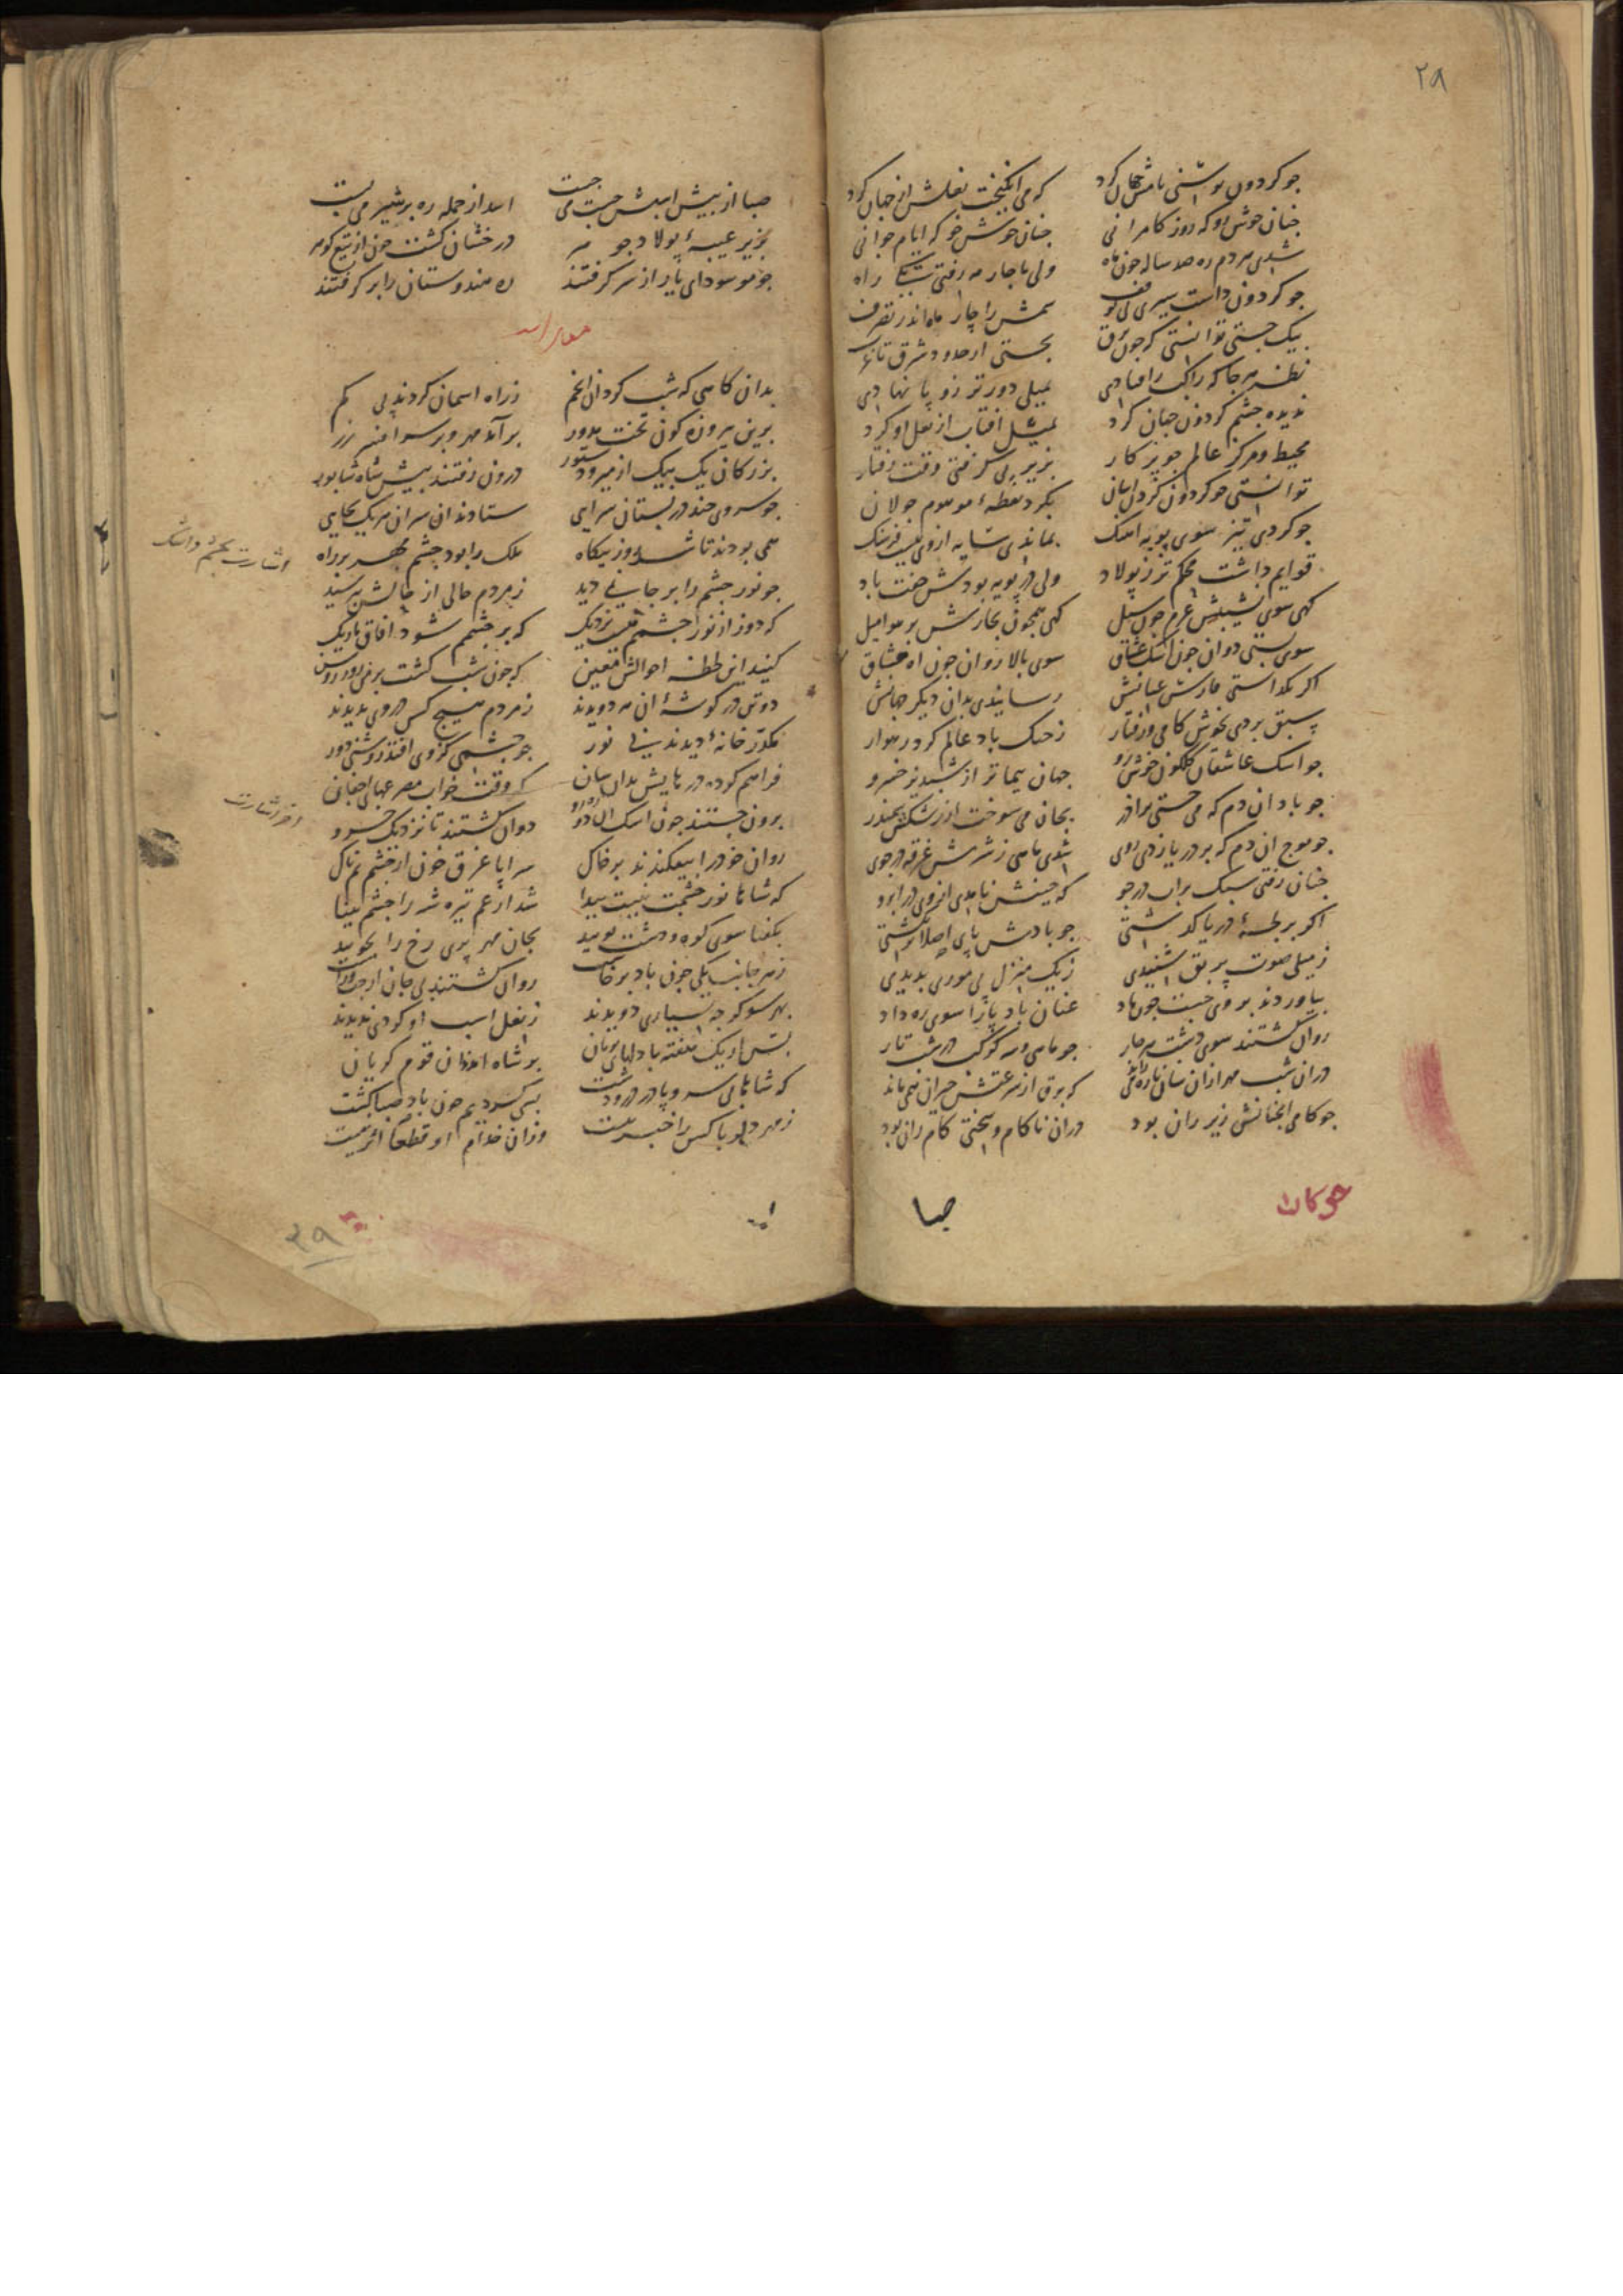 ۲۸
جو کردون توشنی نامش حمال کرد که می انکیخت نعلش از جهان کرد
جنان خوش رو که روز کامرانی جنان خوش خو که ایام جوانی
شدی هر دم ره صد ساله جون ماه ولی ناجار مه رفتی راه
جو کردون داشت سیری بی توقف سمش را چار ماه اندر تصرف
بیک جستی توانستی که جون برق بجستی از حدود شرق تا غرب
بهر جا که راکب را فتادی بمیلی دورتر زو پا نهادی
ندیده جشم کردون جهان کرد بمثل افتاب از نعل او کرد
محیط و مرکز عالم جو پرکار بزیر پی کرفتی وقت رفتار
توانستی جو کردون کردل اسان بکرد نقطهٔ موهوم جولان
جو کردی تیز سوی پویه اهنک بماندی سایه ازوی بیست فرسنک
قوایم داشت محکم تر ز پولاد ولی در پویه بودش جفت باد
کهی سوی نشیبش عزم جون سیل کهی همجون بخارش بر هوا میل
سوی پستی دوان جون اشک عشاق سوی بالا روان جون اه مشتاق
اکر بکذاشتی فارس عنانش رسانیدی بدان دیکر جهانش
سبق بردی بخوش کامی و رفتار ز خنک باد عالم کرد رهوار
جو اشک عاشقان کلکون خوش رو جهان پیماتر از شبدیز خسرو
جو باد ان دم که می جستی بر اذر بجان می سوخت از رشکش سمندر
جو موج ان دم که بر دریا زدی روی شدی ماهی ز شرمش غرقه در جوی
جنان رفتی سبک بر اب در جو که جینش نامدی از وی در ابرو
اکر بر لجهٔ دریا کذشتی جو بادش پای اصلا تر نکشتی
ز میلی صوت پر بق شنیدی ز یک منزل پی موری بدیدی
بیاوردند بر وی جست جون باد عنان باد پا را سوی ره داد
روان کشتند سوی دشت هر جار جو ماهی و سه کوکب در شب تار
دران شب مهر ازان سان باره می راند که برق از سرعتش حیران همی ماند
جو کامی انجنانش زیر ران بود دران ناکام و سختی کام ران بود
جو کان صبا
صبا از پیش اسبش جست می جست اسد از حمله ره بر شیر می بست
بزیر عیبهٔ پولاد جو مه درخشان کشت جون از تیغ کوه
جو مو سودای یار از سر کرفتند ره هندوستان را بر کرفتند
بدان کاهی که شب کردان انجم ز راه اسمان کردند پی کم
برین پیروزه کون تخت مدور برآمد مهر و بر سر افسر زر
بزرکان یک بیک از میر و دستور درون رفتند پیش شاه شابور
جو سروی چند در بستان سرایی ستادند ان سران هر یک بجایی
همی بودند تا شد روز بیکاه ملک را بود جشم مهر بر راه
جو نور جشم را بر جای نی دید ز مردم حالی از حالش بپرسید
که دور از نور جشمم نیست نزدیک که بر جشمم شود افاق تاریک
کنید این لحظه احوالش معین که جون شب کشت بر من روز روشن
دو تن در کوشهٔ ان مه دویدند ز مردم هیچ کس در وی ندیدند
مکدر خانهٔ دیدند بی نور جو جشمی کز وی افتد روشنی دور
فراهم کرده در هایش بدان سان که وقت خواب اجفان
برون جستند جون اشک ان دو رو دوان کشتند تا نزدیک خسرو
روان خود را بیفکندند بر خاک سراپا غرق خون از جشم نمناک
که شاها نور جشمت نیست پیدا شد از غم تیره شه را جشم بینا
بکفتا سوی کوه و دشت پویید بجان مهر پری رخ را بجویید
ز هر جانب یکی جون باد برخاست روان کشتند بی جان از جب و راست
بهر سو کر جه بسیاری دویدند ز نعل اسب او کردی ندیدند
پس از یک هفته با دلهای بریان بر شاه امدند ان قوم کریان
که شاها بی سر و پا در در و دشت بسی کردیم جون باد صبا کشت
ز مهر دلربا کس را خبر نیست وزان خدام او قطعا اثر نیست
اشارت بجشم داشت
اشارت
۲۹